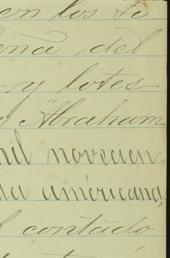 en los ti
ená del
y lotes
y Abraham
mil novecien
da américana,
l contado